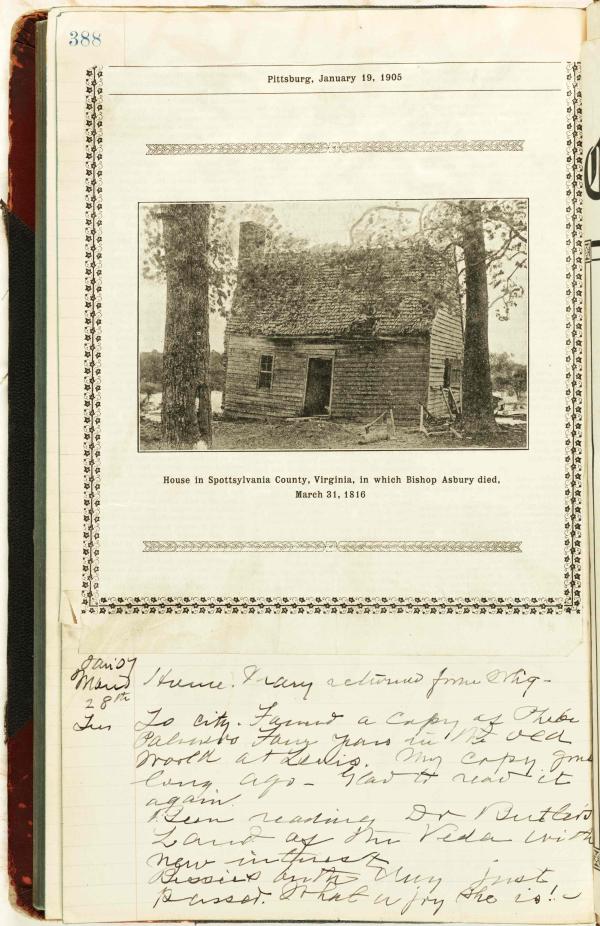 388
Pittsburg, January 19, 1905
House in Spottsylvania County, Virginia, in which Bishop Asbury died,
March 31, 1816
28th
Home. Mary returned from
To city. Found a copy of Phebe
Palmers Four years in the Old
World at Lewis. My copy gone
long ago - Glad to read it
again.
Been reading Dr Butler's
Land of the Veda with
new interest
Bessies birth day just
passed. What a joy she is! -